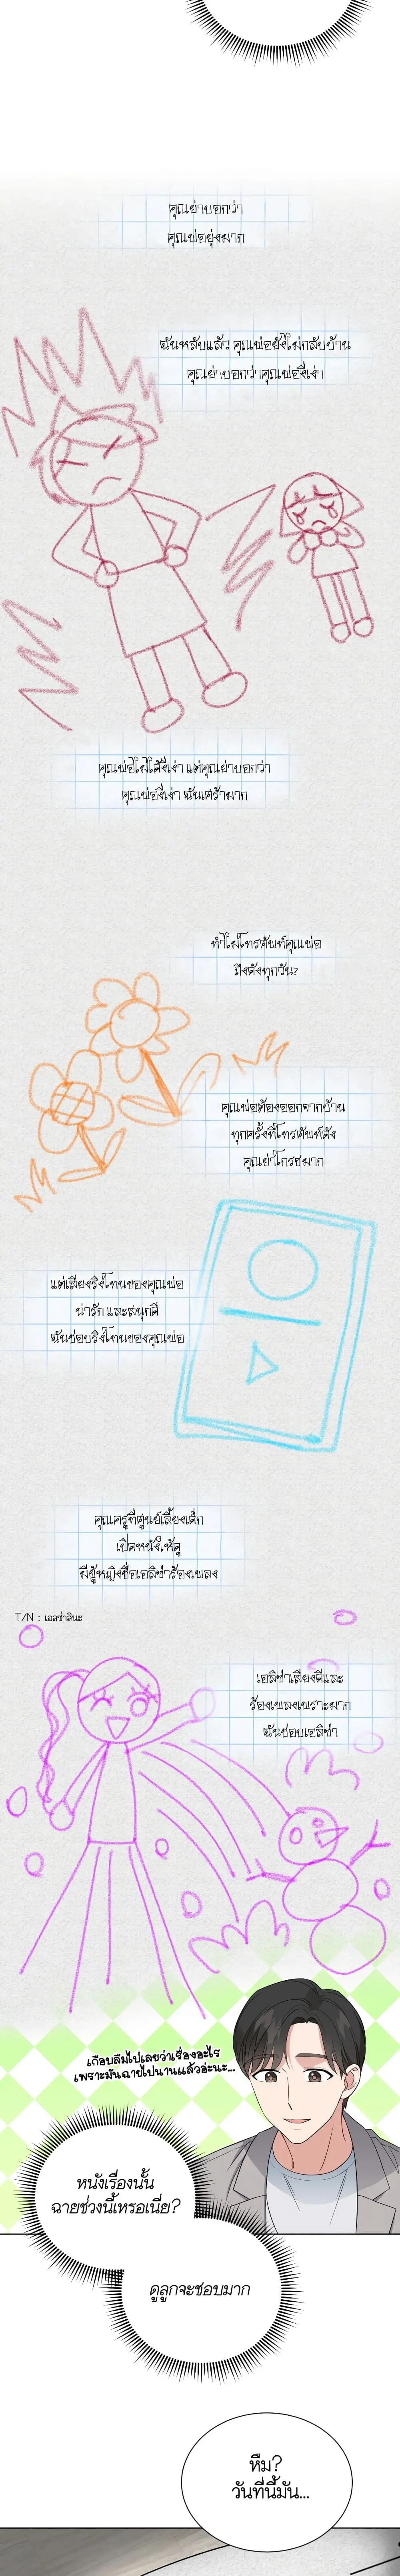 คุณย่าบอกว่า
คุณพ่อยุ่งมาก
ฉันหลับแล้ว คุณพ่อยังไม่กลับบ้าน
คุณย่าบอกว่าคุณพ่องี่เง่า
คุณพ่อไม่ได้งี่เง่า แต่คุณย่าบอกว่า
คุณพ่องี่เง่า ฉันเศร้ามาก
ทำไมโทรศัพท์คุณพ่อ
ถึงดังทุกวัน?
คุณพ่อต้องออกจากบ้าน
ทุกครั้งที่โทรศัพท์ดัง
คุณย่าโกรธมาก
แต่เสียงริงโทนของคุณพ่อ
น่ารัก และสนุกดี
ฉันชอบริงโทนของคุณพ่อ
คุณครูที่ศูนย์เลี้ยงเด็ก
เปิดหนังให้ดู
มีผู้หญิงชื่อเอลิซ่าร้องเพลง
T/N : เอลซ่าสินะ
เอลิซ่าเสียงดีและ
ร้องเพลงเพราะมาก
ฉันชอบเอลิซ่า
เกือบลืมไปเลยว่าเรื่องอะไร
เพราะมันฉายไปนานแล้วอ่ะนะ...
หนังเรื่องนั้น
ฉายช่วงนี้เหรอเนี่ย?
ดูลูกจะชอบมาก
หืม?
วันที่นี้มัน...